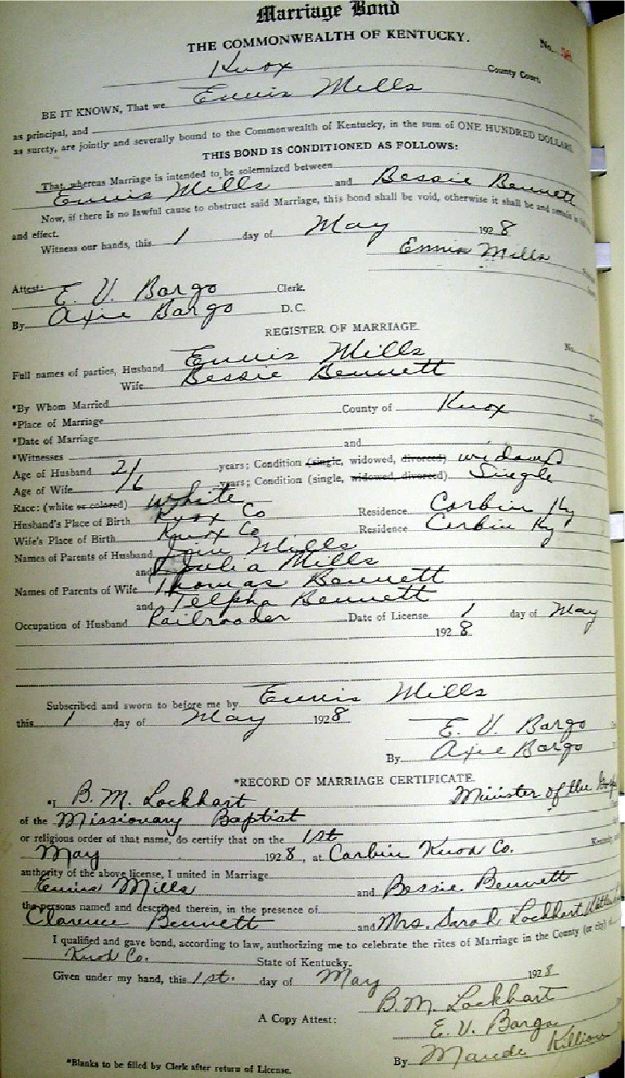 Marriage Bond
THE COMMONWEALTH OF KENTUCKY.
No.
Knox County Court.
BE IT KNOWN, That we Ennis Mills
as principal, and
as surety, are jointly and severally bound to the Commonwealth of Kentucky, in the sum of ONE HUNDRED DOLLARS.
THIS BOND IS CONDITIONED AS FOLLOWS:
That, whereas Marriage is intended to be solemnized between
Ennis Mills and Bessie Bennett
Now, if there is no lawful cause to obstruct said Marriage, this bond shall be void, otherwise it shall be and remain in
and effect.
Witness our hands, this 1 day of May 1928
Ennis Mills
Attest: E. V. Bargo Clerk.
By Axie Bargo D.C.
REGISTER OF MARRIAGE.
No.
Full names of parties, Husband Ennis Mills
Wife Bessie Bennett
*By Whom Married
*Place of Marriage County of Knox
*Date of Marriage
*Witnesses and
Age of Husband 21 years; Condition (single, widowed, divorced) widowed
Age of Wife 16 years; Condition (single, widowed, divorced) Single
Race: (white or colored) White
Husband's Place of Birth Knox Co Residence Corbin Ky
Wife's Place of Birth Knox Co Residence Corbin Ky
Names of Parents of Husband Mills
and Julia Mills
Names of Parents of Wife Thomas Bennett
and Telpha Bennett
Occupation of Husband Railroader Date of License 1 day of May
1928
Subscribed and sworn to before me by Ennis Mills
this 1 day of May 1928
E. V. Bargo
By Axie Bargo
*RECORD OF MARRIAGE CERTIFICATE.
*I B. M. Lockhart Minister of the
of the Missionary Baptist
or religious order of that name, do certify that on the 1st
May 1928, at Corbin Knox Co.
authority of the above license, I united in Marriage
Ennis Mills and Bessie Bennett
the persons named and described therein, in the presence of
Clarence Bennett and Mrs. Sarah Lockhart
I qualified and gave bond, according to law, authorizing me to celebrate the rites of Marriage in the County (or city) of
Knox Co. State of Kentucky.
Given under my hand, this 1st. day of May 1928
B. M. Lockhart
A Copy Attest: E. V. Bargo
By Maude Killion
*Blanks to be filled by Clerk after return of License.